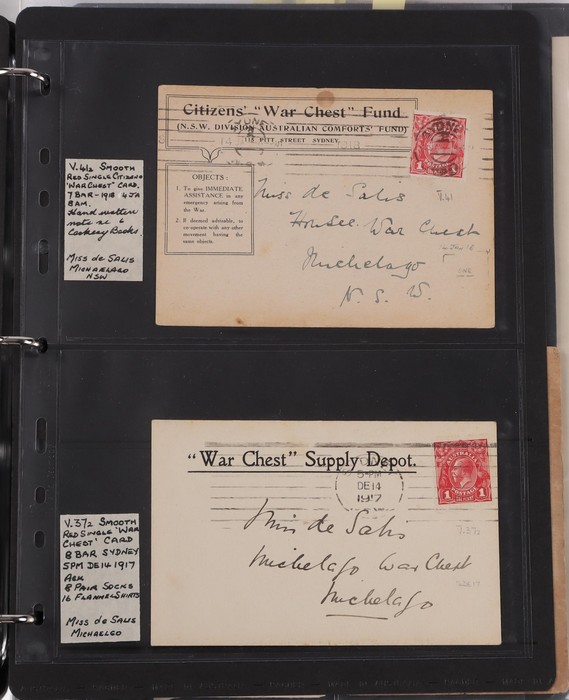 Citizens' "War Chest" Fund
(N.S.W. DIVISION AUSTRALIAN COMFORTS' FUND)
112 PITT STREET SYDNEY.
SYDNEY
OBJECTS:
1. To give IMMEDIATE
ASSISTANCE in any
emergency arising from
the War.
2. If deemed advisable, to
co-operate with any other
movement having the
same objects.
1 1
Miss de Salis
Honsec. War Chest
Michelago
N. S. W.
V.41
V.41/2 SMOOTH
RED SINGLE CITIZENS
'WAR CHEST' CARD.
7 BAR - 1918 4 JA
8AM.
Hand written
note re 6
Cookery Books.
MISS de SALIS
MICHAELAGO
NSW
"War Chest" Supply Depot.
SYDNEY
5 PM
DE 14
1917
POSTAGE
1 1
V.37/2
Miss de Salis
Michelago War Chest
Michelago
V.37/2 SMOOTH
RED SINGLE 'WAR
CHEST' CARD
8 BAR SYDNEY
5PM DE 14 1917
ACK
8 PAIR SOCKS
16 FLANNEL SHIRTS
MISS de SALIS
MICHAELGO